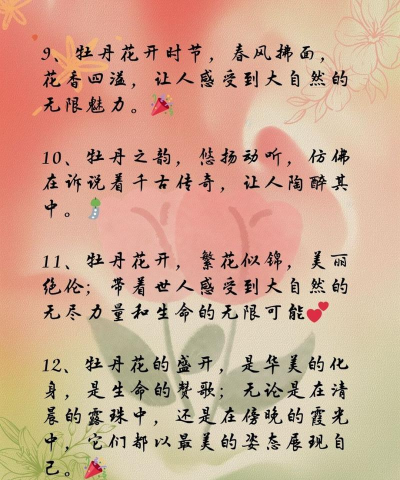 9、牡丹花开时节，春风拂面，
花香四溢，让人感受到大自然的
无限魅力。🎉
10、牡丹之韵，悠扬动听，仿佛
在诉说着千古传奇，让人陶醉其
中。🎐
11、牡丹花开，繁花似锦，美丽
绝伦；带着世人感受到大自然的
无尽力量和生命的无限可能💕
12、牡丹花的盛开，是华美的化
身，是生命的赞歌；无论是在清
晨的露珠中，还是在傍晚的霞光
中，它们都以最美的姿态展现自
己。🎉